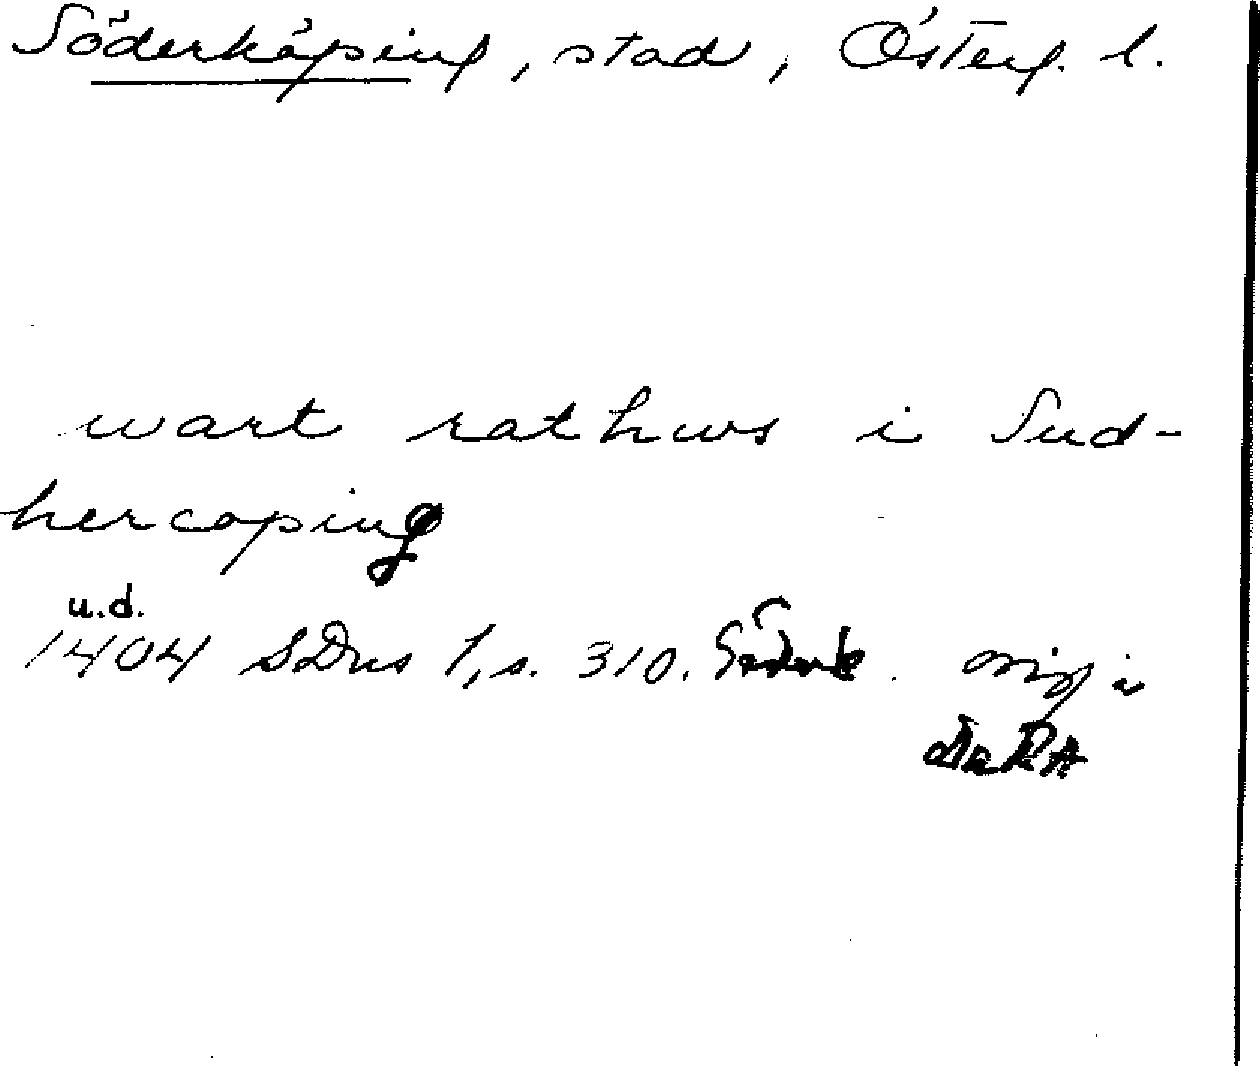 Söderköping, stad, Österg. l.
wart rathws i Sud-
hercoping
u.d.
1404 SDns 1, s. 310. Söderk. orig i
DaRA